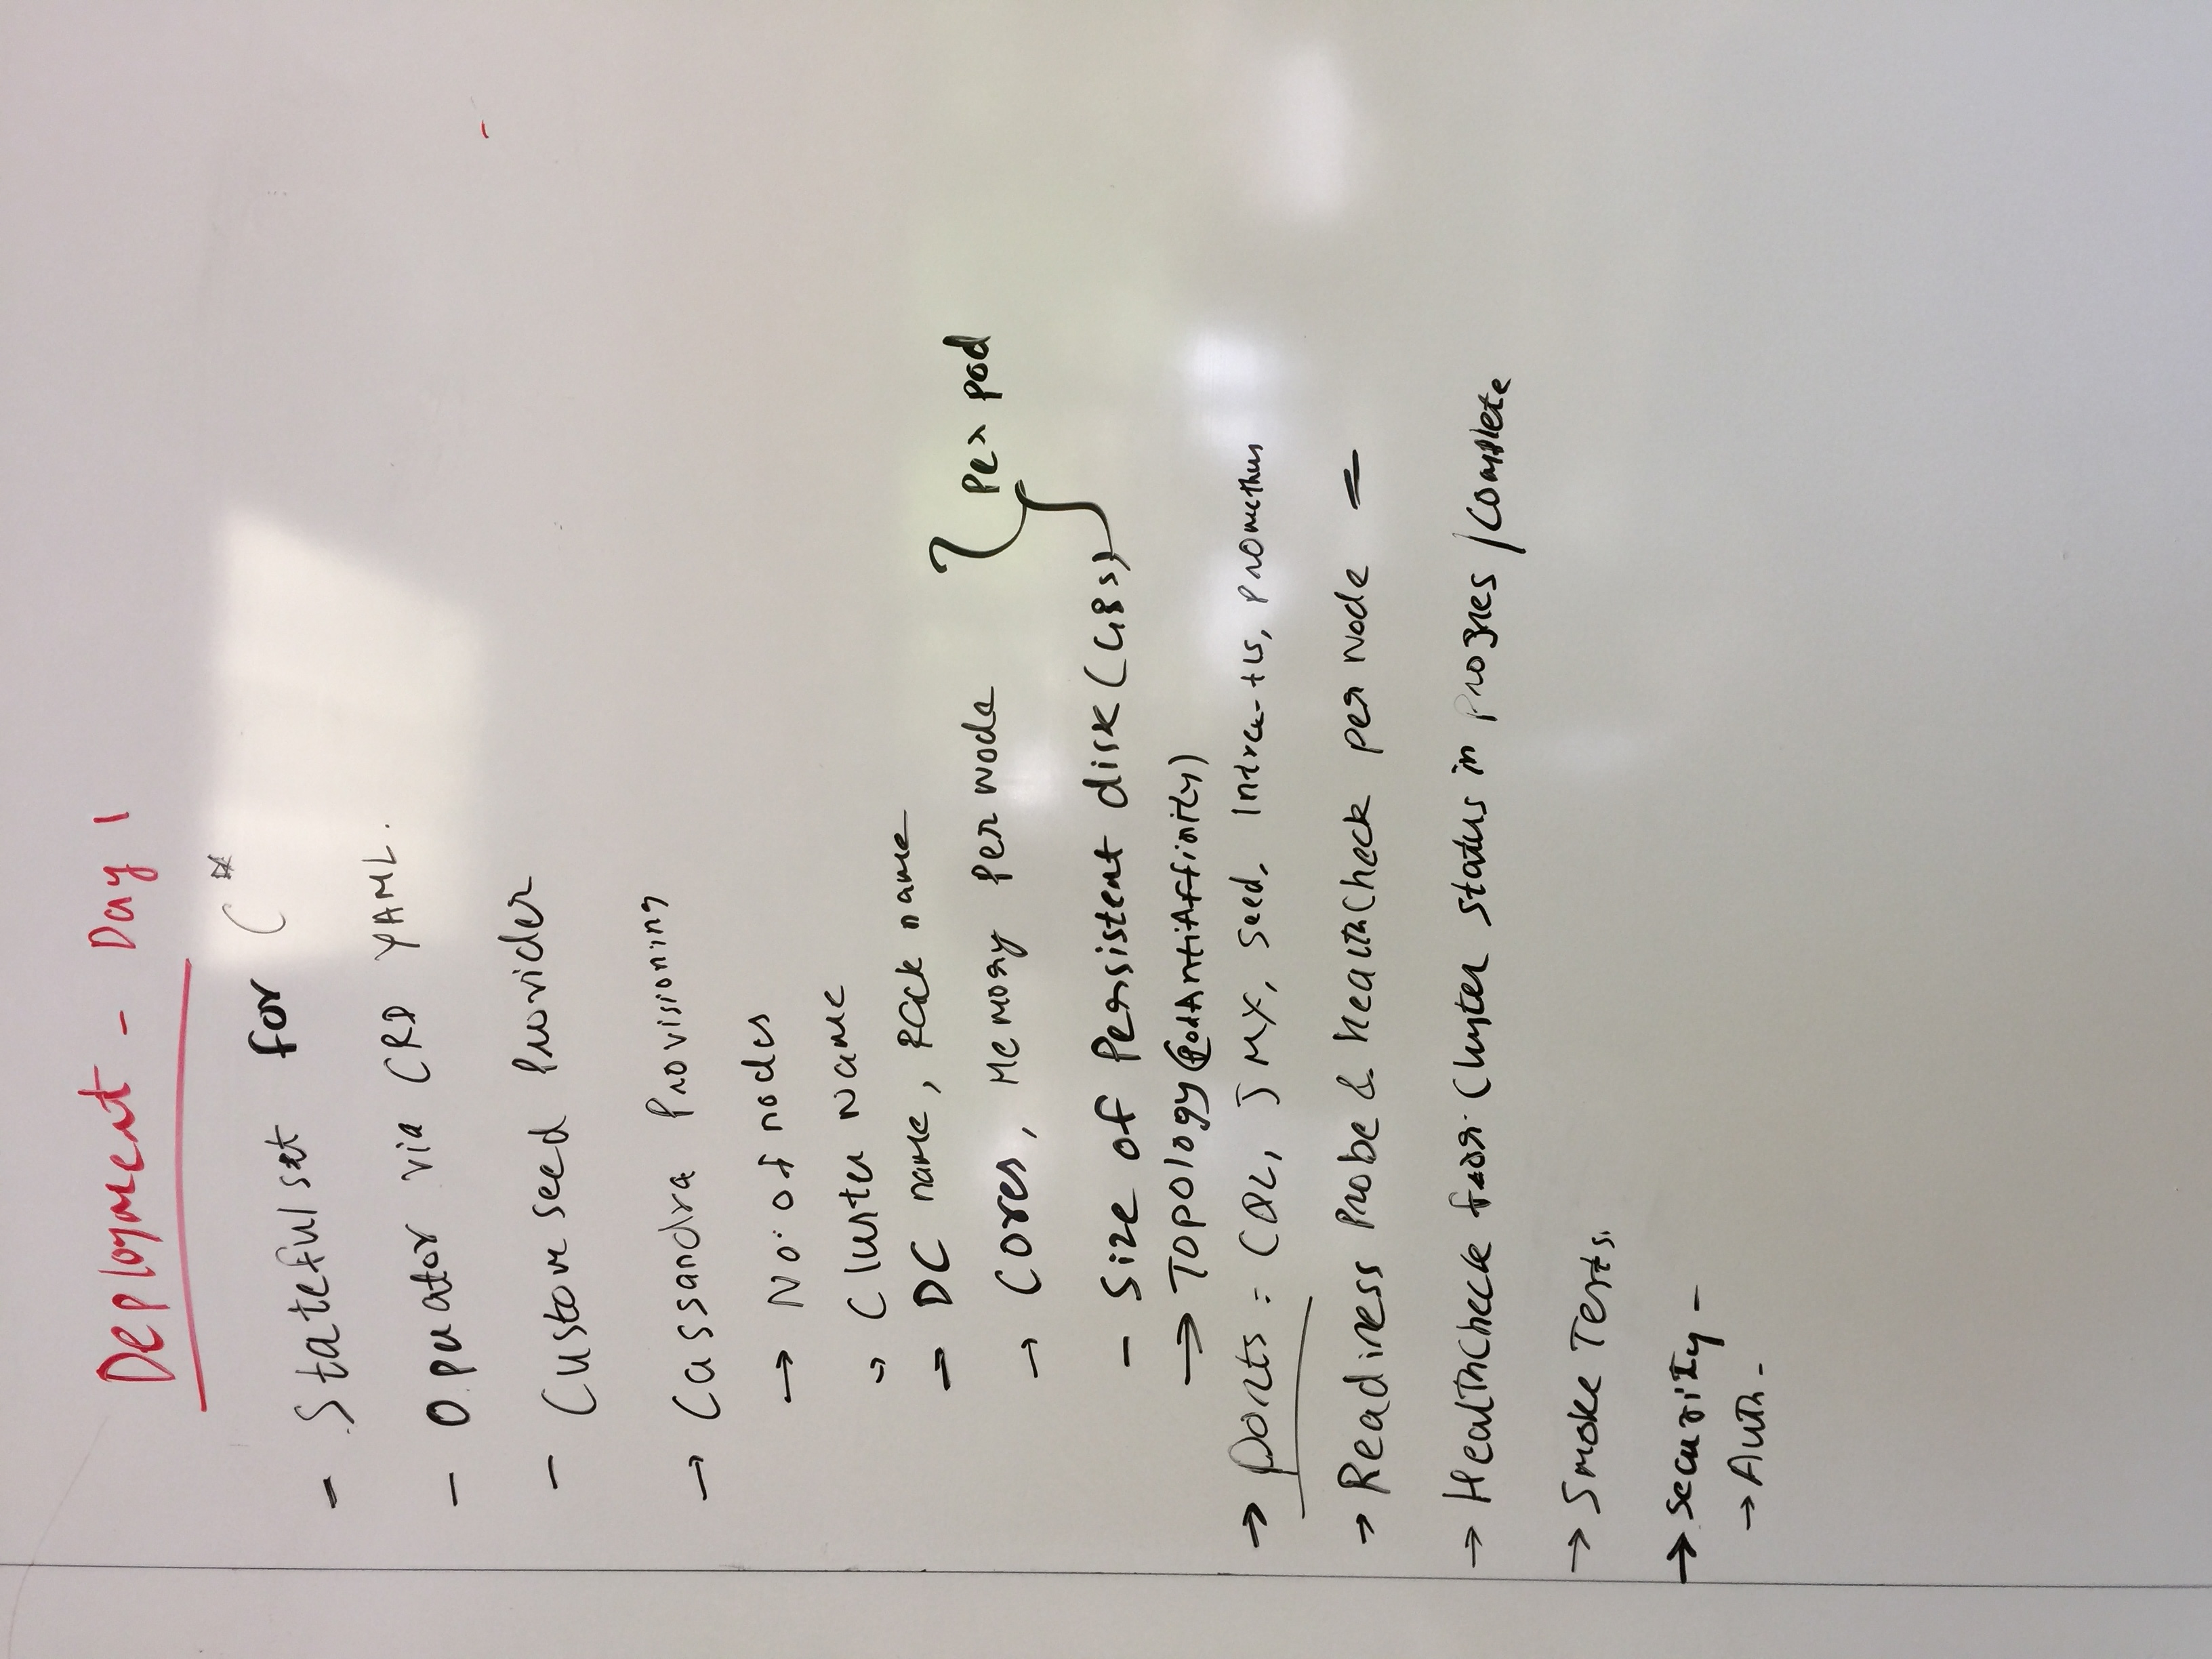 Deployment - Day 1
- Statefulset for C*
- Operator via CRD YAML.
- Custom seed Provider
→ Cassandra Provisioning
→ No. of nodes
→ Cluster Name
→ DC name, Rack name
→ Cores, Memory Per Node } Per pod
- Size of Persistent disk (GBs)
→ Topology (PodAntiAffinity)
→ Ports : CQL, JMX, Seed, Intra-tls, Prometheus
→ Readiness Probe & HealthCheck per Node =
→ HealthCheck for Cluster status in Progres / Complete
→ Smoke Tests.
→ Security -
→ Auth -